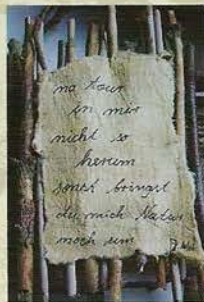 na tour
in mir
nicht so
herum
sonst bringst
du mich Natur
noch um